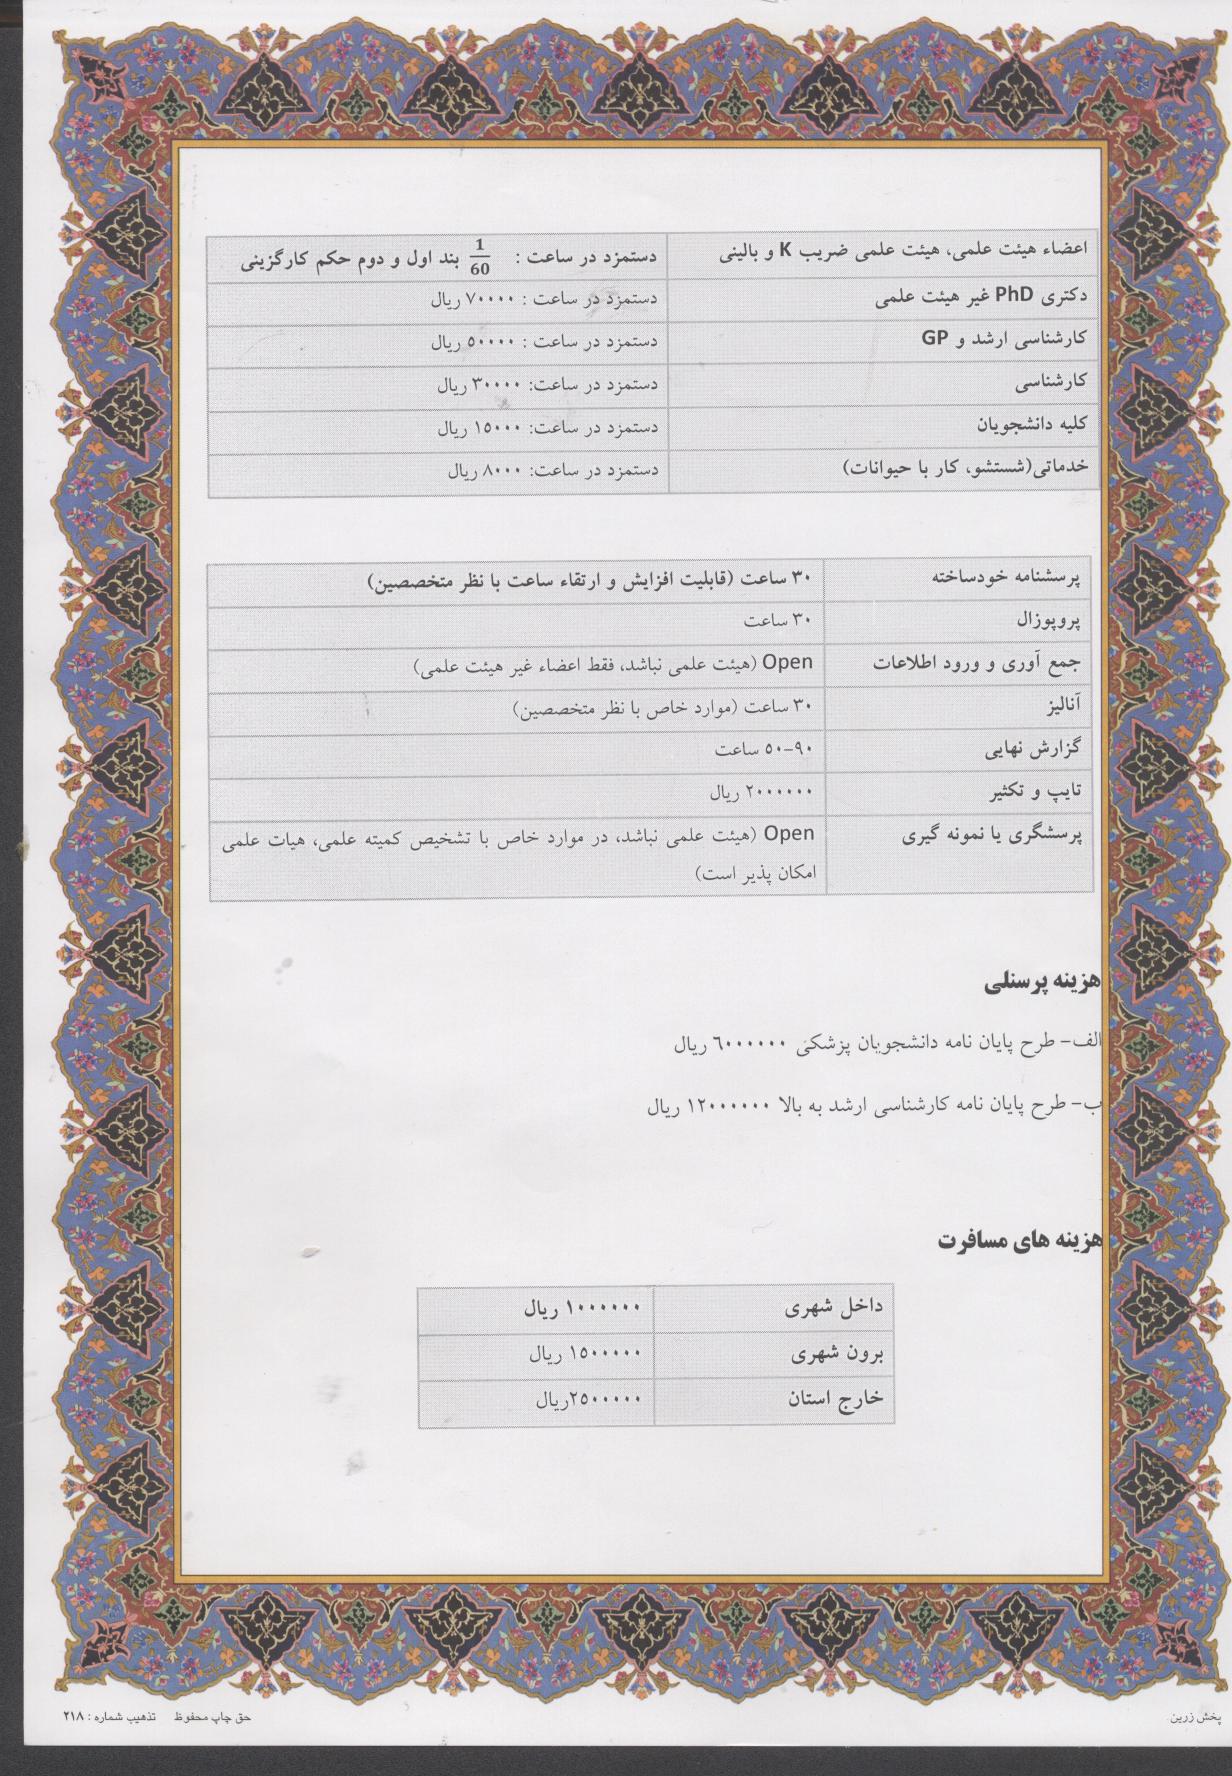 اعضاء هیئت علمی، هیئت علمی ضریب K و بالینی	دستمزد در ساعت : 1/60 بند اول و دوم حکم کارگزینی
دکتری PhD غیر هیئت علمی	دستمزد در ساعت : ۷۰۰۰۰ ریال
کارشناسی ارشد و GP	دستمزد در ساعت : ۵۰۰۰۰ ریال
کارشناسی	دستمزد در ساعت: ۳۰۰۰۰ ریال
کلیه دانشجویان	دستمزد در ساعت: ۱۵۰۰۰ ریال
خدماتی(شستشو، کار با حیوانات)	دستمزد در ساعت: ۸۰۰۰ ریال
پرسشنامه خودساخته	۳۰ ساعت (قابلیت افزایش و ارتقاء ساعت با نظر متخصصین)
پروپوزال	۳۰ ساعت
جمع آوری و ورود اطلاعات	Open (هیئت علمی نباشد، فقط اعضاء غیر هیئت علمی)
آنالیز	۳۰ ساعت (موارد خاص با نظر متخصصین)
گزارش نهایی	۹۰-۵۰ ساعت
تایپ و تکثیر	۲۰۰۰۰۰۰ ریال
پرسشگری یا نمونه گیری	Open (هیئت علمی نباشد، در موارد خاص با تشخیص کمیته علمی، هیات علمی
امکان پذیر است)
هزینه پرسنلی
الف- طرح پایان نامه دانشجویان پزشکی ۶۰۰۰۰۰۰ ریال
ب- طرح پایان نامه کارشناسی ارشد به بالا ۱۲۰۰۰۰۰۰ ریال
هزینه های مسافرت
داخل شهری	۱۰۰۰۰۰۰ ریال
برون شهری	۱۵۰۰۰۰۰ ریال
خارج استان	۲۵۰۰۰۰۰ریال
پخش زرین	حق چاپ محفوظ	تذهیب شماره : ۲۱۸